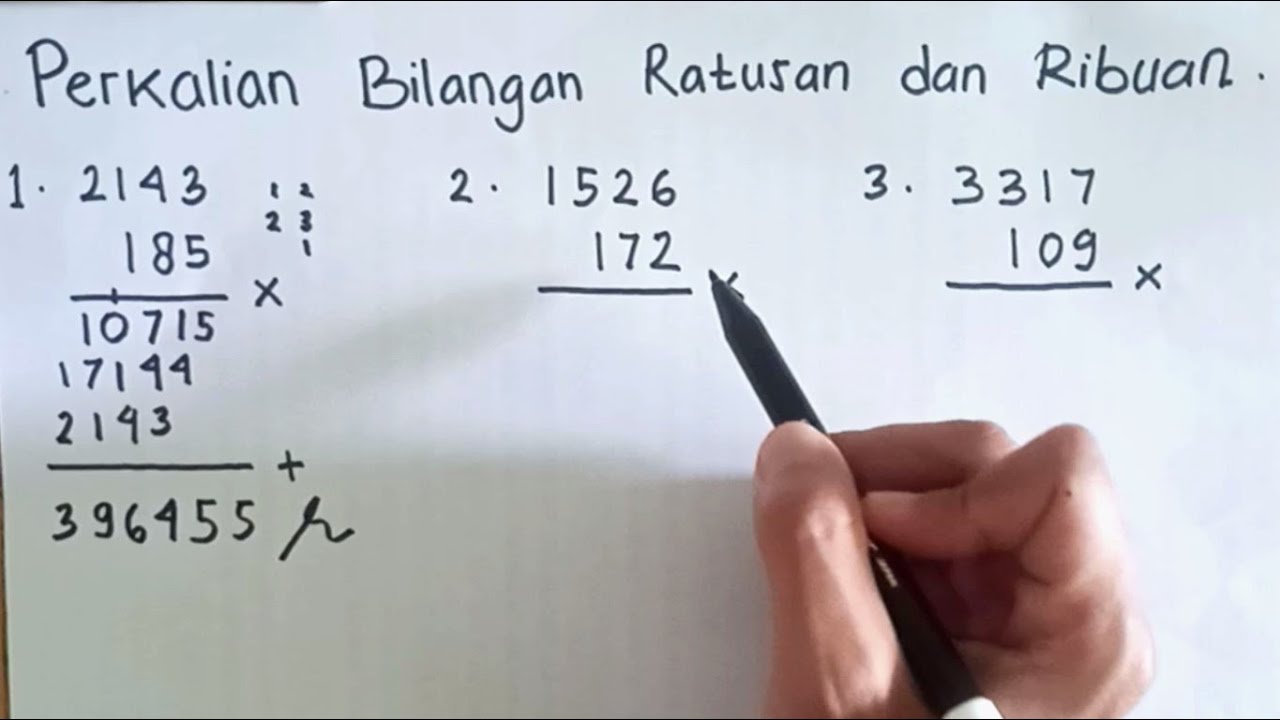 Perkalian Bilangan Ratusan dan Ribuan.
1. 2143
185
×
10715
17144
2143
+
396455
1 2
2 3
1
2. 1526
172
×
3. 3317
109
×